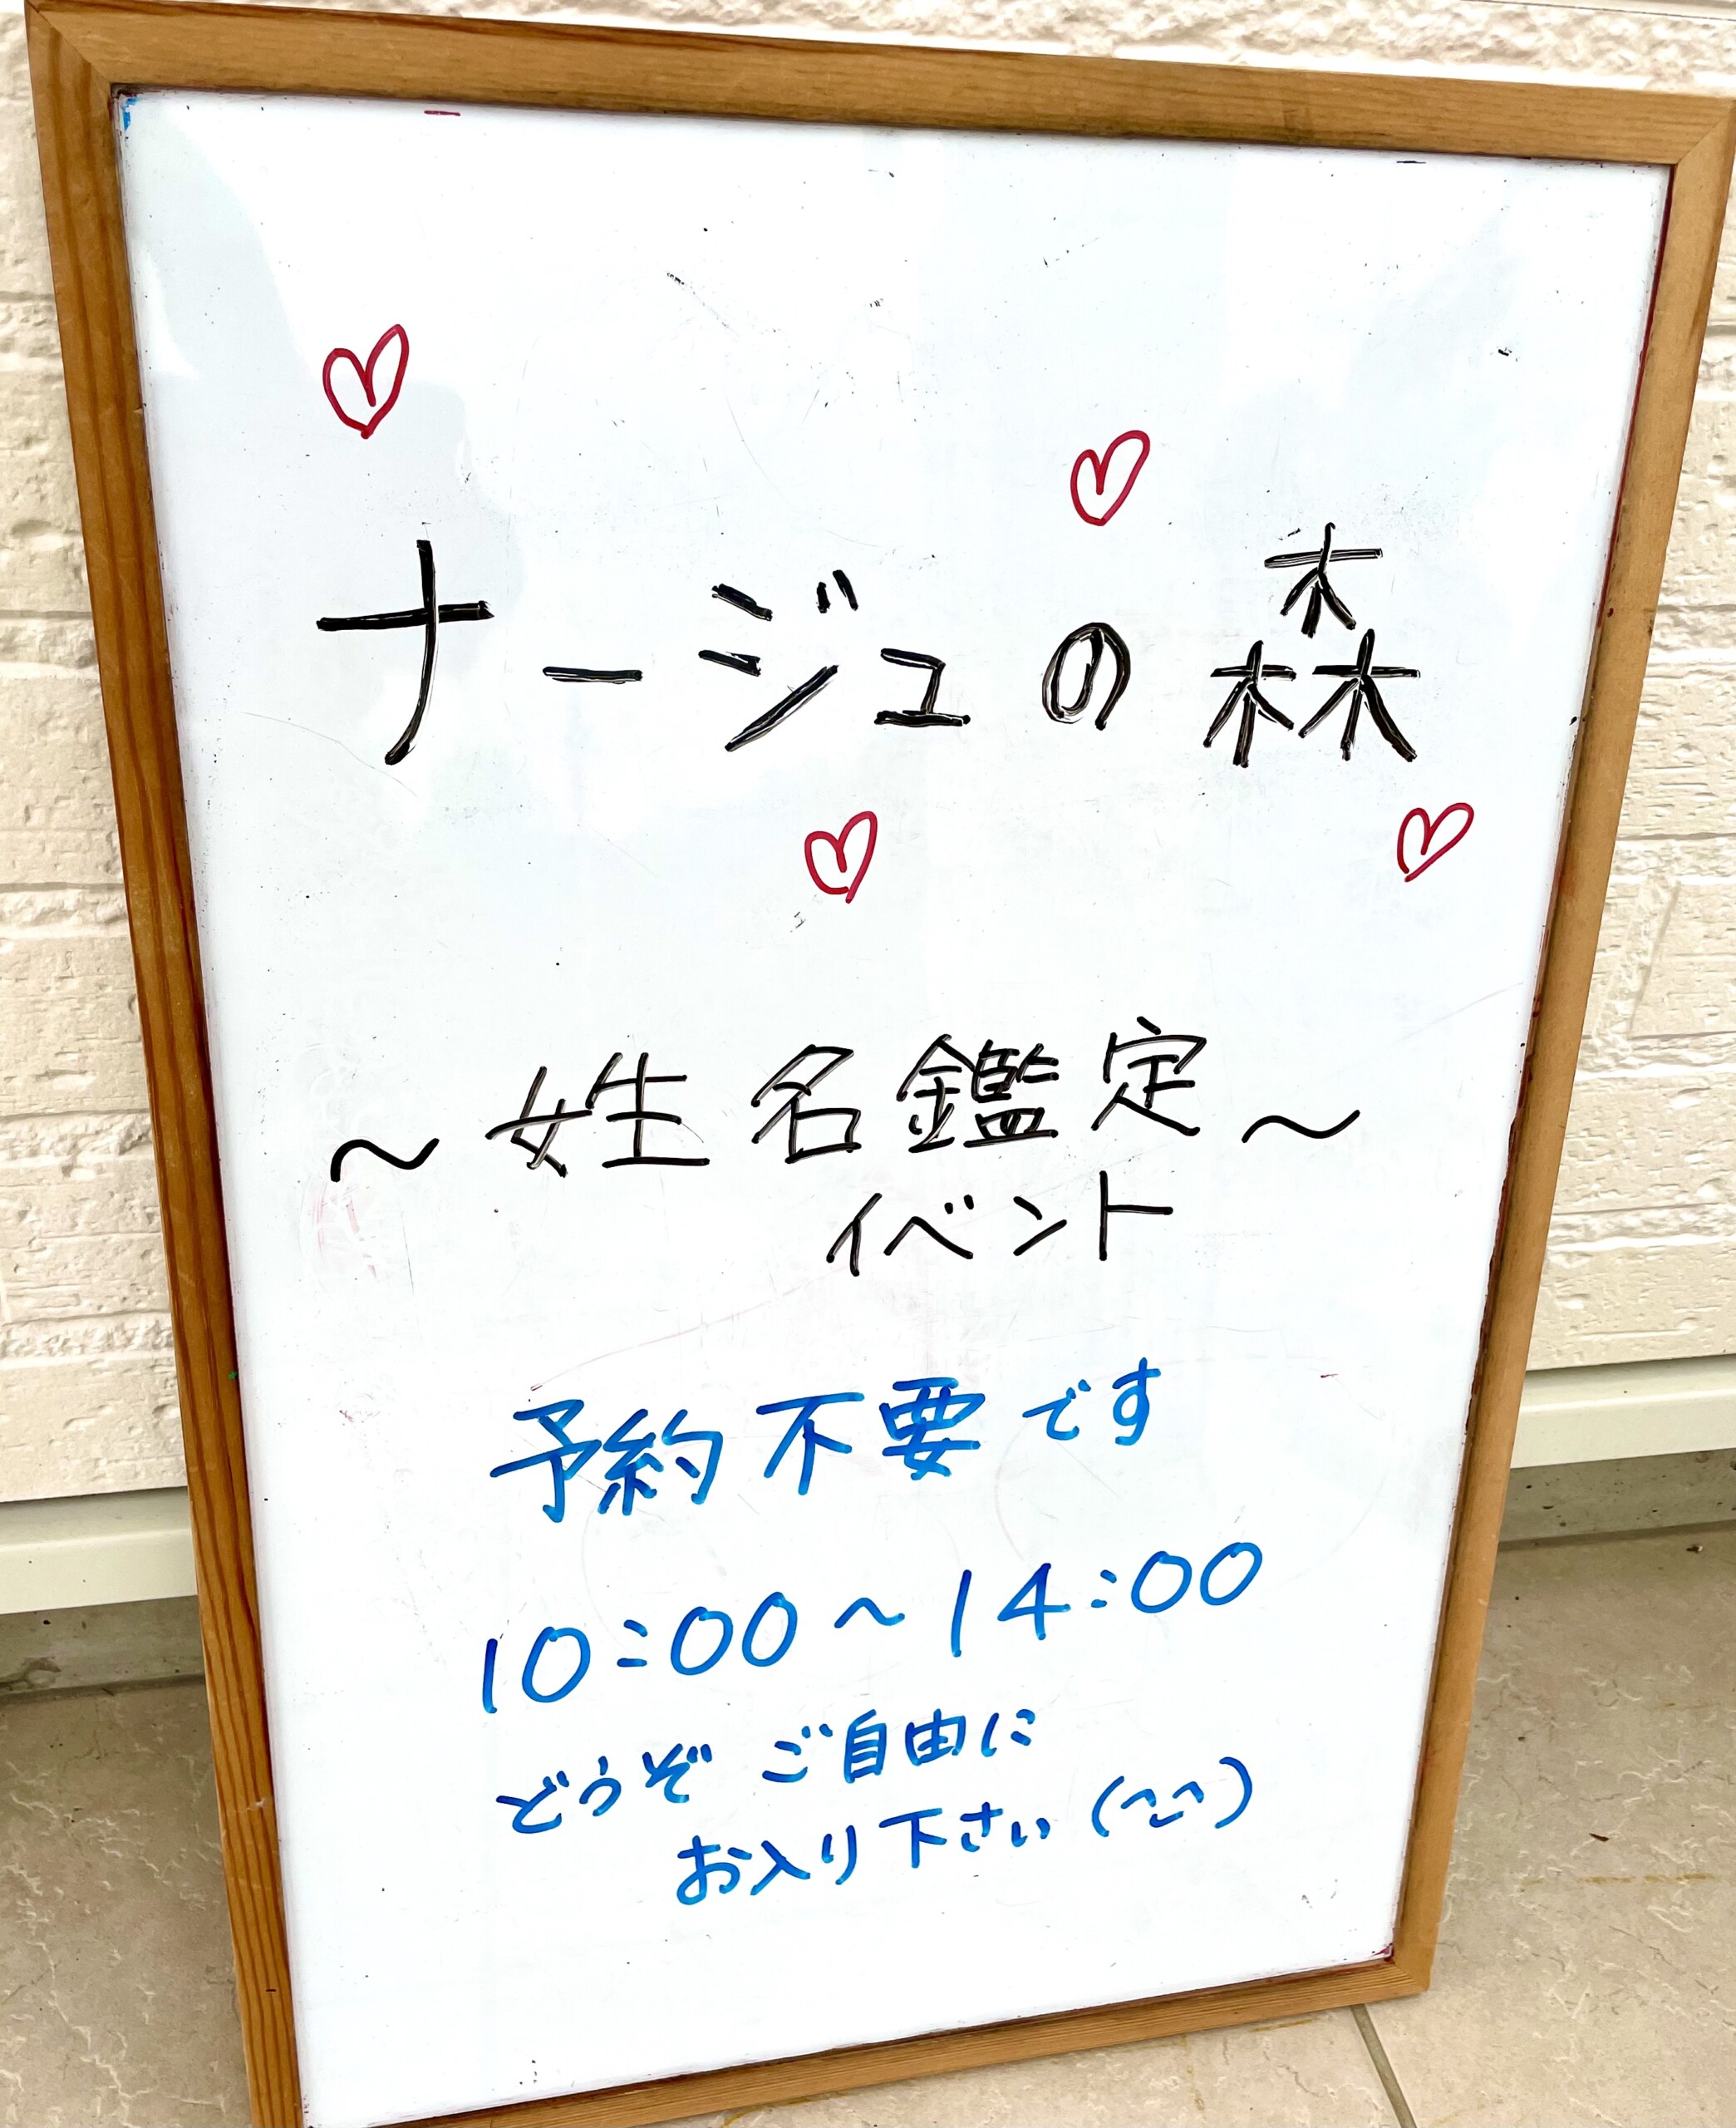 ナージュの森
～姓名鑑定～
イベント
予約不要です
10:00～14:00
どうぞご自由に
お入り下さい(^^)